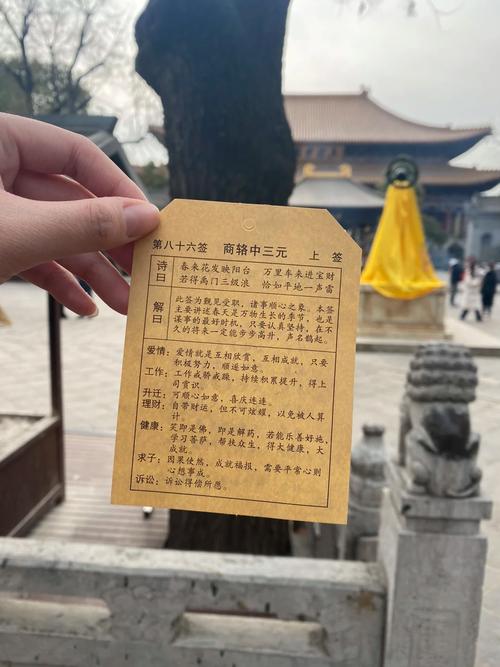 第八十六签 商辂中三元 上 签
诗曰
春来花发映阳台 万里车来进宝财
若得禹门三级浪 恰如平地一声雷
解曰
此签为觐见受职，诸事顺心之象。本签
主要讲述春天是万物生长的季节，也是
谋事的最好时机，只要认真坚持，在不
久的将来一定能步步高升，声名鹊起。
爱情：爱情就是互相欣赏，互相成就，只要
积极努力，顺遂如意。
工作：工作戒骄戒躁，持续积累提升，得上
司赏识。
升迁：可顺心如意，喜庆连连。
理财：自带财运，但不可炫耀，以免被人算
计。
健康：笑即是佛，即是解药，若能乐善好施，
学习菩萨，帮扶众生，得大健康，大
成就。
求子：因果使然，成就福报，需要平常心则
心想事成。
诉讼：诉讼得偿所愿。